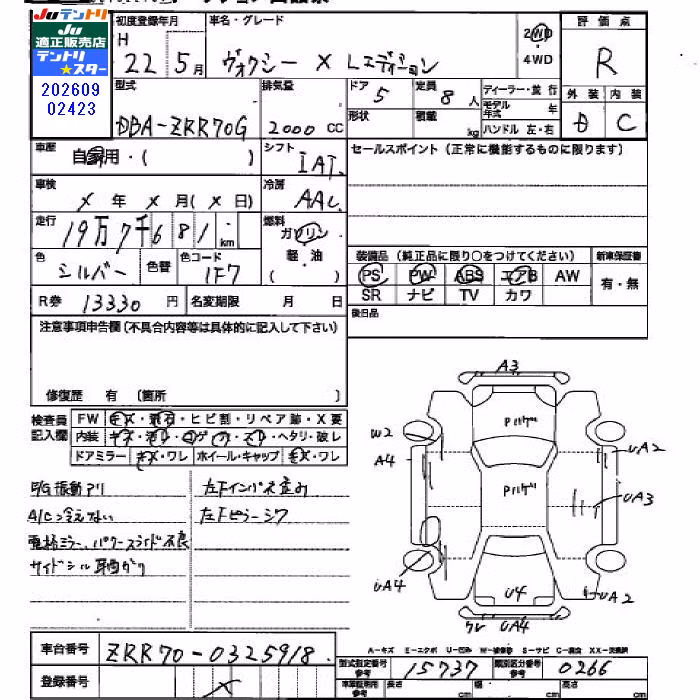 JUテントリ
JU
適正販売店
テントリ
★スター
202609
02423
初度登録年月
H
22 5月
車名・グレード
ヴォクシー X Lエディション
2WD
4WD
評価点
R
型式
DBA-ZRR70G
排気量
2000 CC
ドア
5
形状
定員
8 人
積載
kg
ディーラー・並行
モデル年式
年
ハンドル 左・右
外装
内装
D
C
車歴
自家用・( )
シフト
IAT
セールスポイント (正常に機能するものに限ります)
車検
X 年 X 月 (X 日)
冷房
AAC
走行
19万7千681 km
燃料
ガソリン
軽・油
( )
色
シルバー
色替
色コード
1F7
装備品 (純正品に限り○をつけてください)
新車保証書
PS PW ABS エアB AW
SR ナビ TV カワ
有・無
R券 13330 円
名変期限 月 日
後日品
注意事項申告欄 (不具合内容等は具体的に記入して下さい)
修復歴 有 〔箇所 〕
検査員
記入欄
FW キズ・飛石・ヒビ割・リペア跡・X要
内装 キズ・汚レ・コゲ・穴・スレ・ヘタリ・破レ
ドアミラー キズ・ワレ ホイール・キャップ キズ・ワレ
E/G振動アリ
A/C冷えない
電格ミラー、パワースライド不良
サイドシル 曲がり
左インパネ歪み
左ピラーシワ
A3
W2
A4
UA2
UA3
UA4
U4
UA2
ワレ UA4
A-キズ E-エクボ U-凹み W-補修跡 S-サビ C-腐食 XX-交換済
車台番号
ZRR70-0325918
型式指定番号
参考
15737
類別区分番号
参考
0266
登録番号
X
長さ
cm
幅
cm
高さ
cm